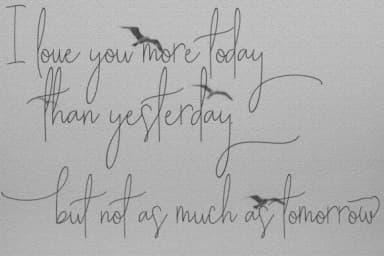 I love you more today
than yesterday
but not as much as tomorrow